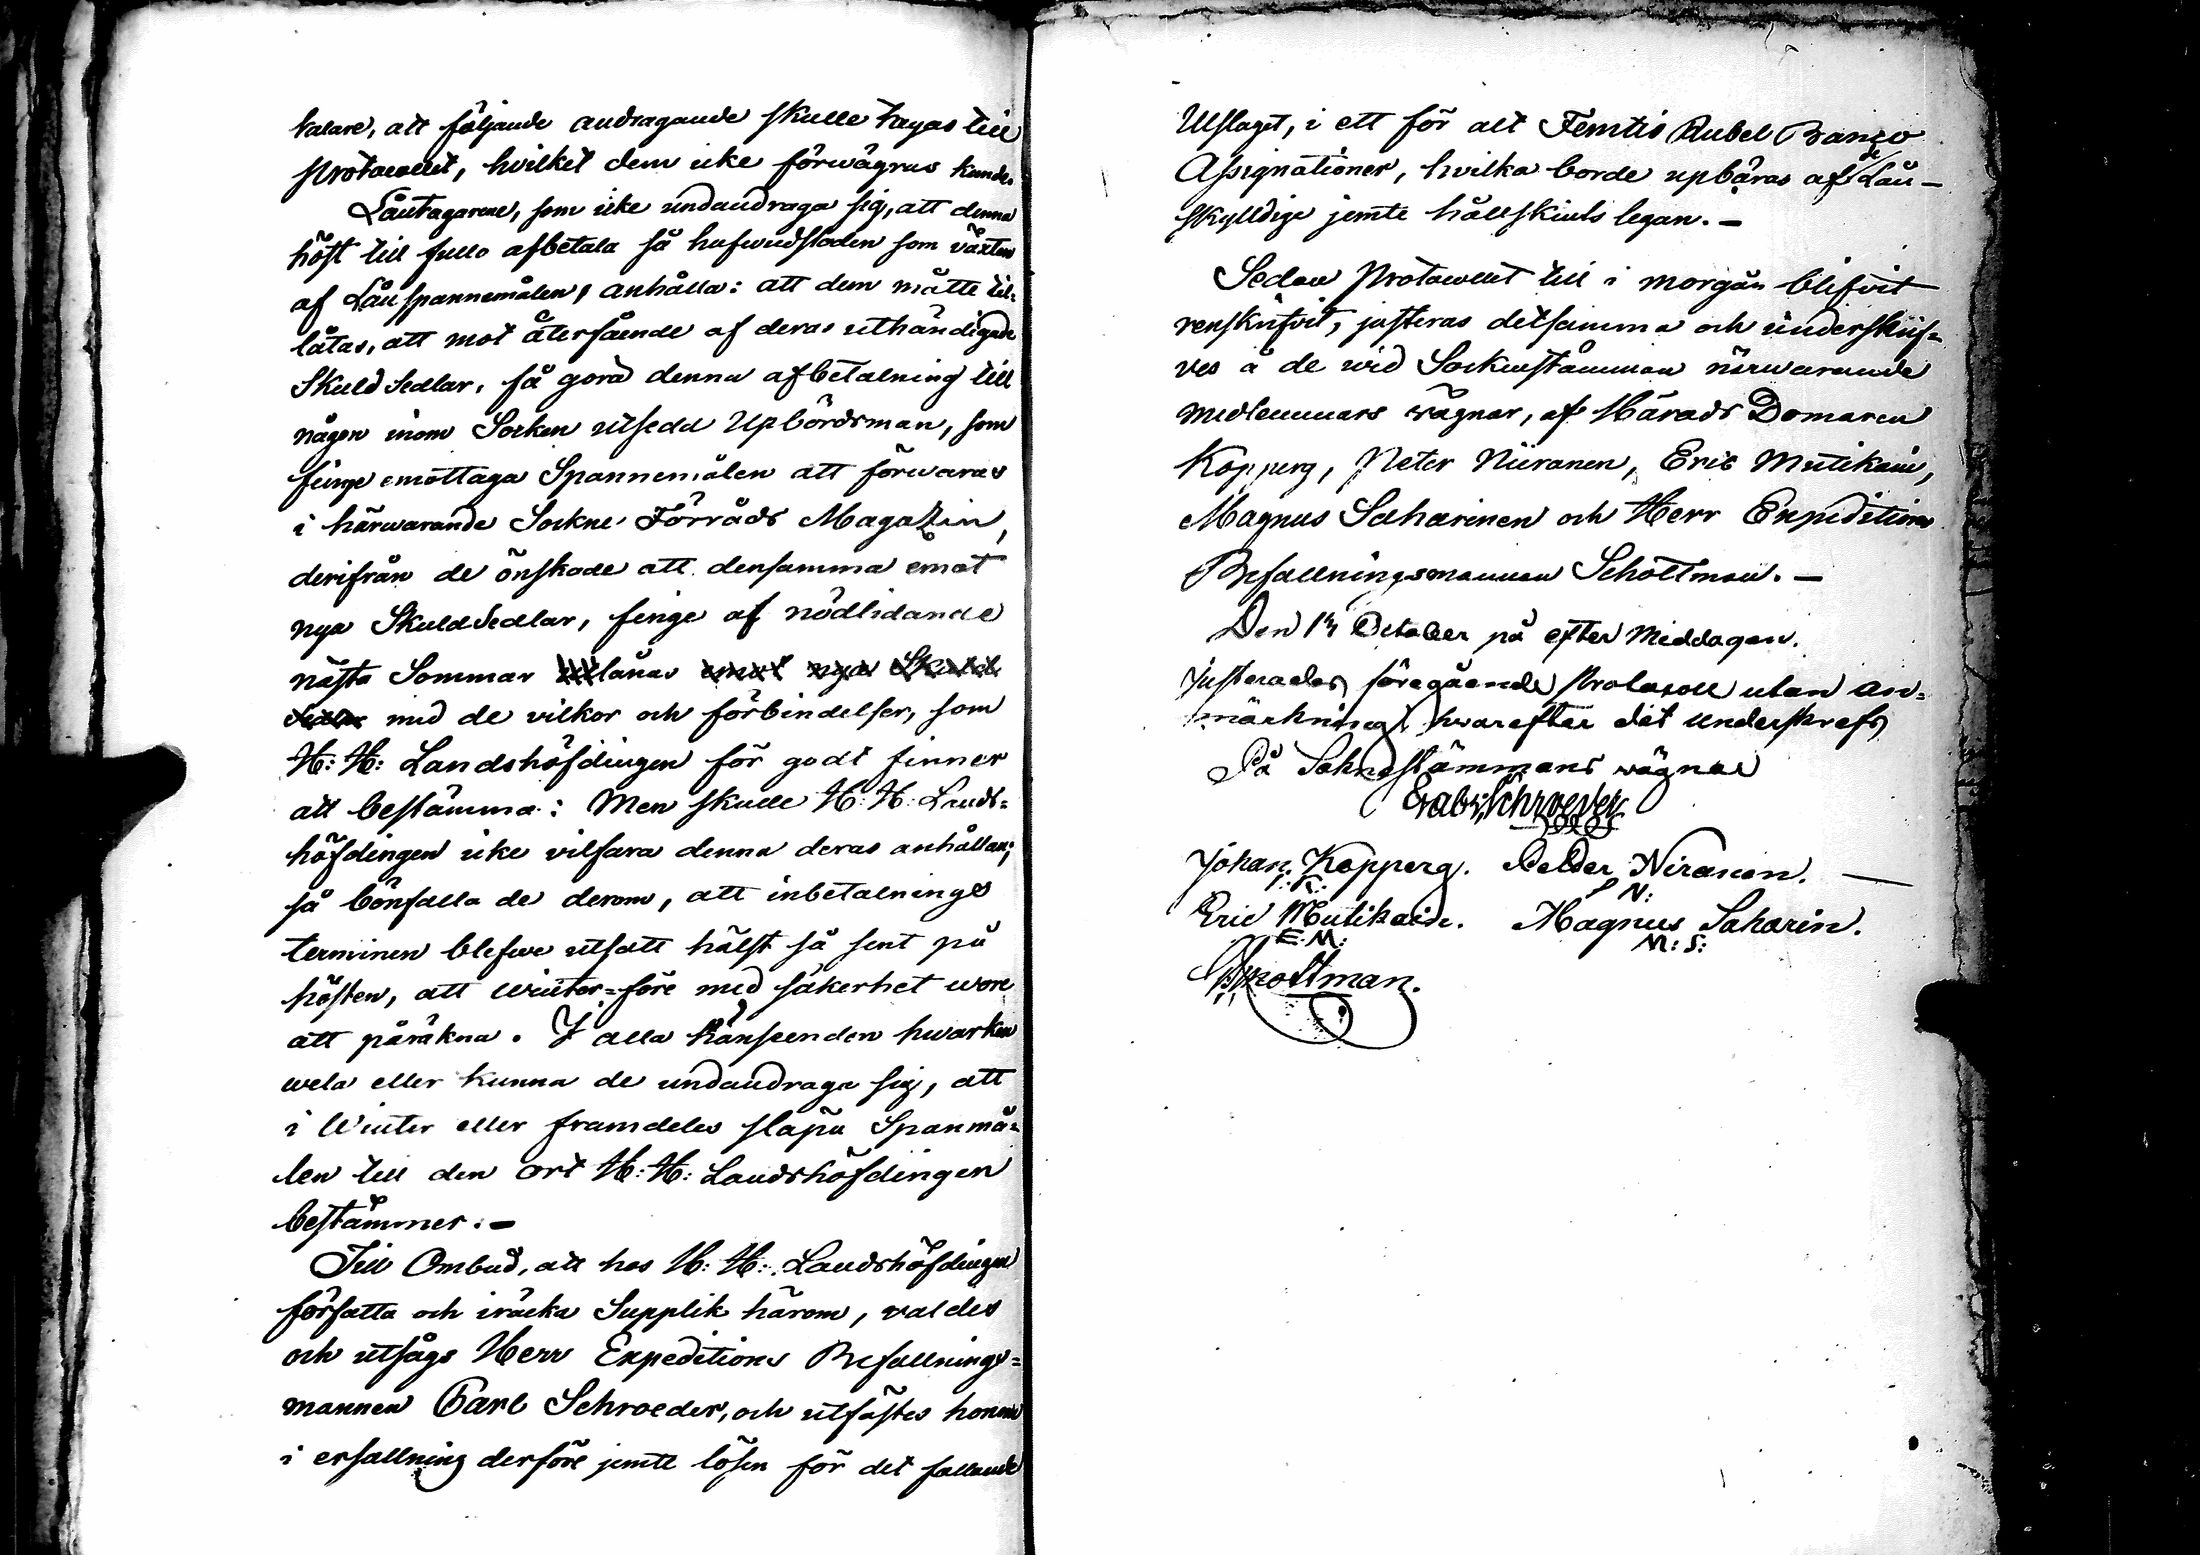 talare, att följande andragande skulle tagas till
Protocollet, hvilket dem icke förwägras kunde.
Låntagarene, som icke undandraga sig, att denna
höst till fullo afbetala så hufwudstolen som växten
af Lånspannemålen, anhålla: att dem måtte til-
låtas, att mot återfående af deras uthändigade
Skuld Sedlar, få göra denna afbetalning till
någon inom Socken utsedd Upbördsman, som
finge emottaga Spannemålen att förwaras
i härwarande Sockne Förråds Magazin,
derifrån de önskade att densamma emot
nya Skuld Sedlar, finge af nödlidande
nästa Sommar utlånas emot nya Skuld
Sedlar med de vilkor och förbindelser, som
H: H: Landshöfdingen för godt finner
att bestämma: Men skulle H: H: Lands-
höfdingen icke vilfara denna deras anhållan;
så bönfalla de derom, att inbetalnings
terminen blefwe utsatt hälst så sent på
hösten, att winter-före med säkerhet wore
att påräkna. I alla hänseenden hwarken
wela eller kunna de undandraga sig, att
i Winter eller framdeles släpa Spanmå-
len till den ort H: H: Landshöfdingen
bestämmer.-
Till Ombud, att hos H: H: Landshöfdingen
författa och inäcka Supplik härom, valdes
och utsågs Herr Expeditions Befallnings-
mannen Carl Schroeder, och utfästes honom
i ersättning derföre jemte lösen för det fallande
Utslaget, i ett för alt Femtio Rubel Banco
Assignationer, hvilka borde upbäras af de Lån-
skylldige jemte hållskjuts legan.-
Sedan Protocollet till i morgon blifvit
renskrifvit, justeras detsamma och underskrif-
ves å de wid Sockenstämman närwarande
medlemmars wägnar, af Härads Domaren
Kopperg, Peter Niiranen, Eric Mutikain,
Magnus Saharinen och Herr Expeditions
Befallningsmannen Schottman.-
Den 14 October på efter Middagen.
Justerades föregående Protocoll utan an-
märkning, hwarefter det underskrefs
På Soknestämmans wägnar
Gabr. Schroeder
Johan Kopperg. Petter Niranen.
J: K: P N:
Eric Mutikain. Magnus Saharin.
E: M: M: S:
Schottman.